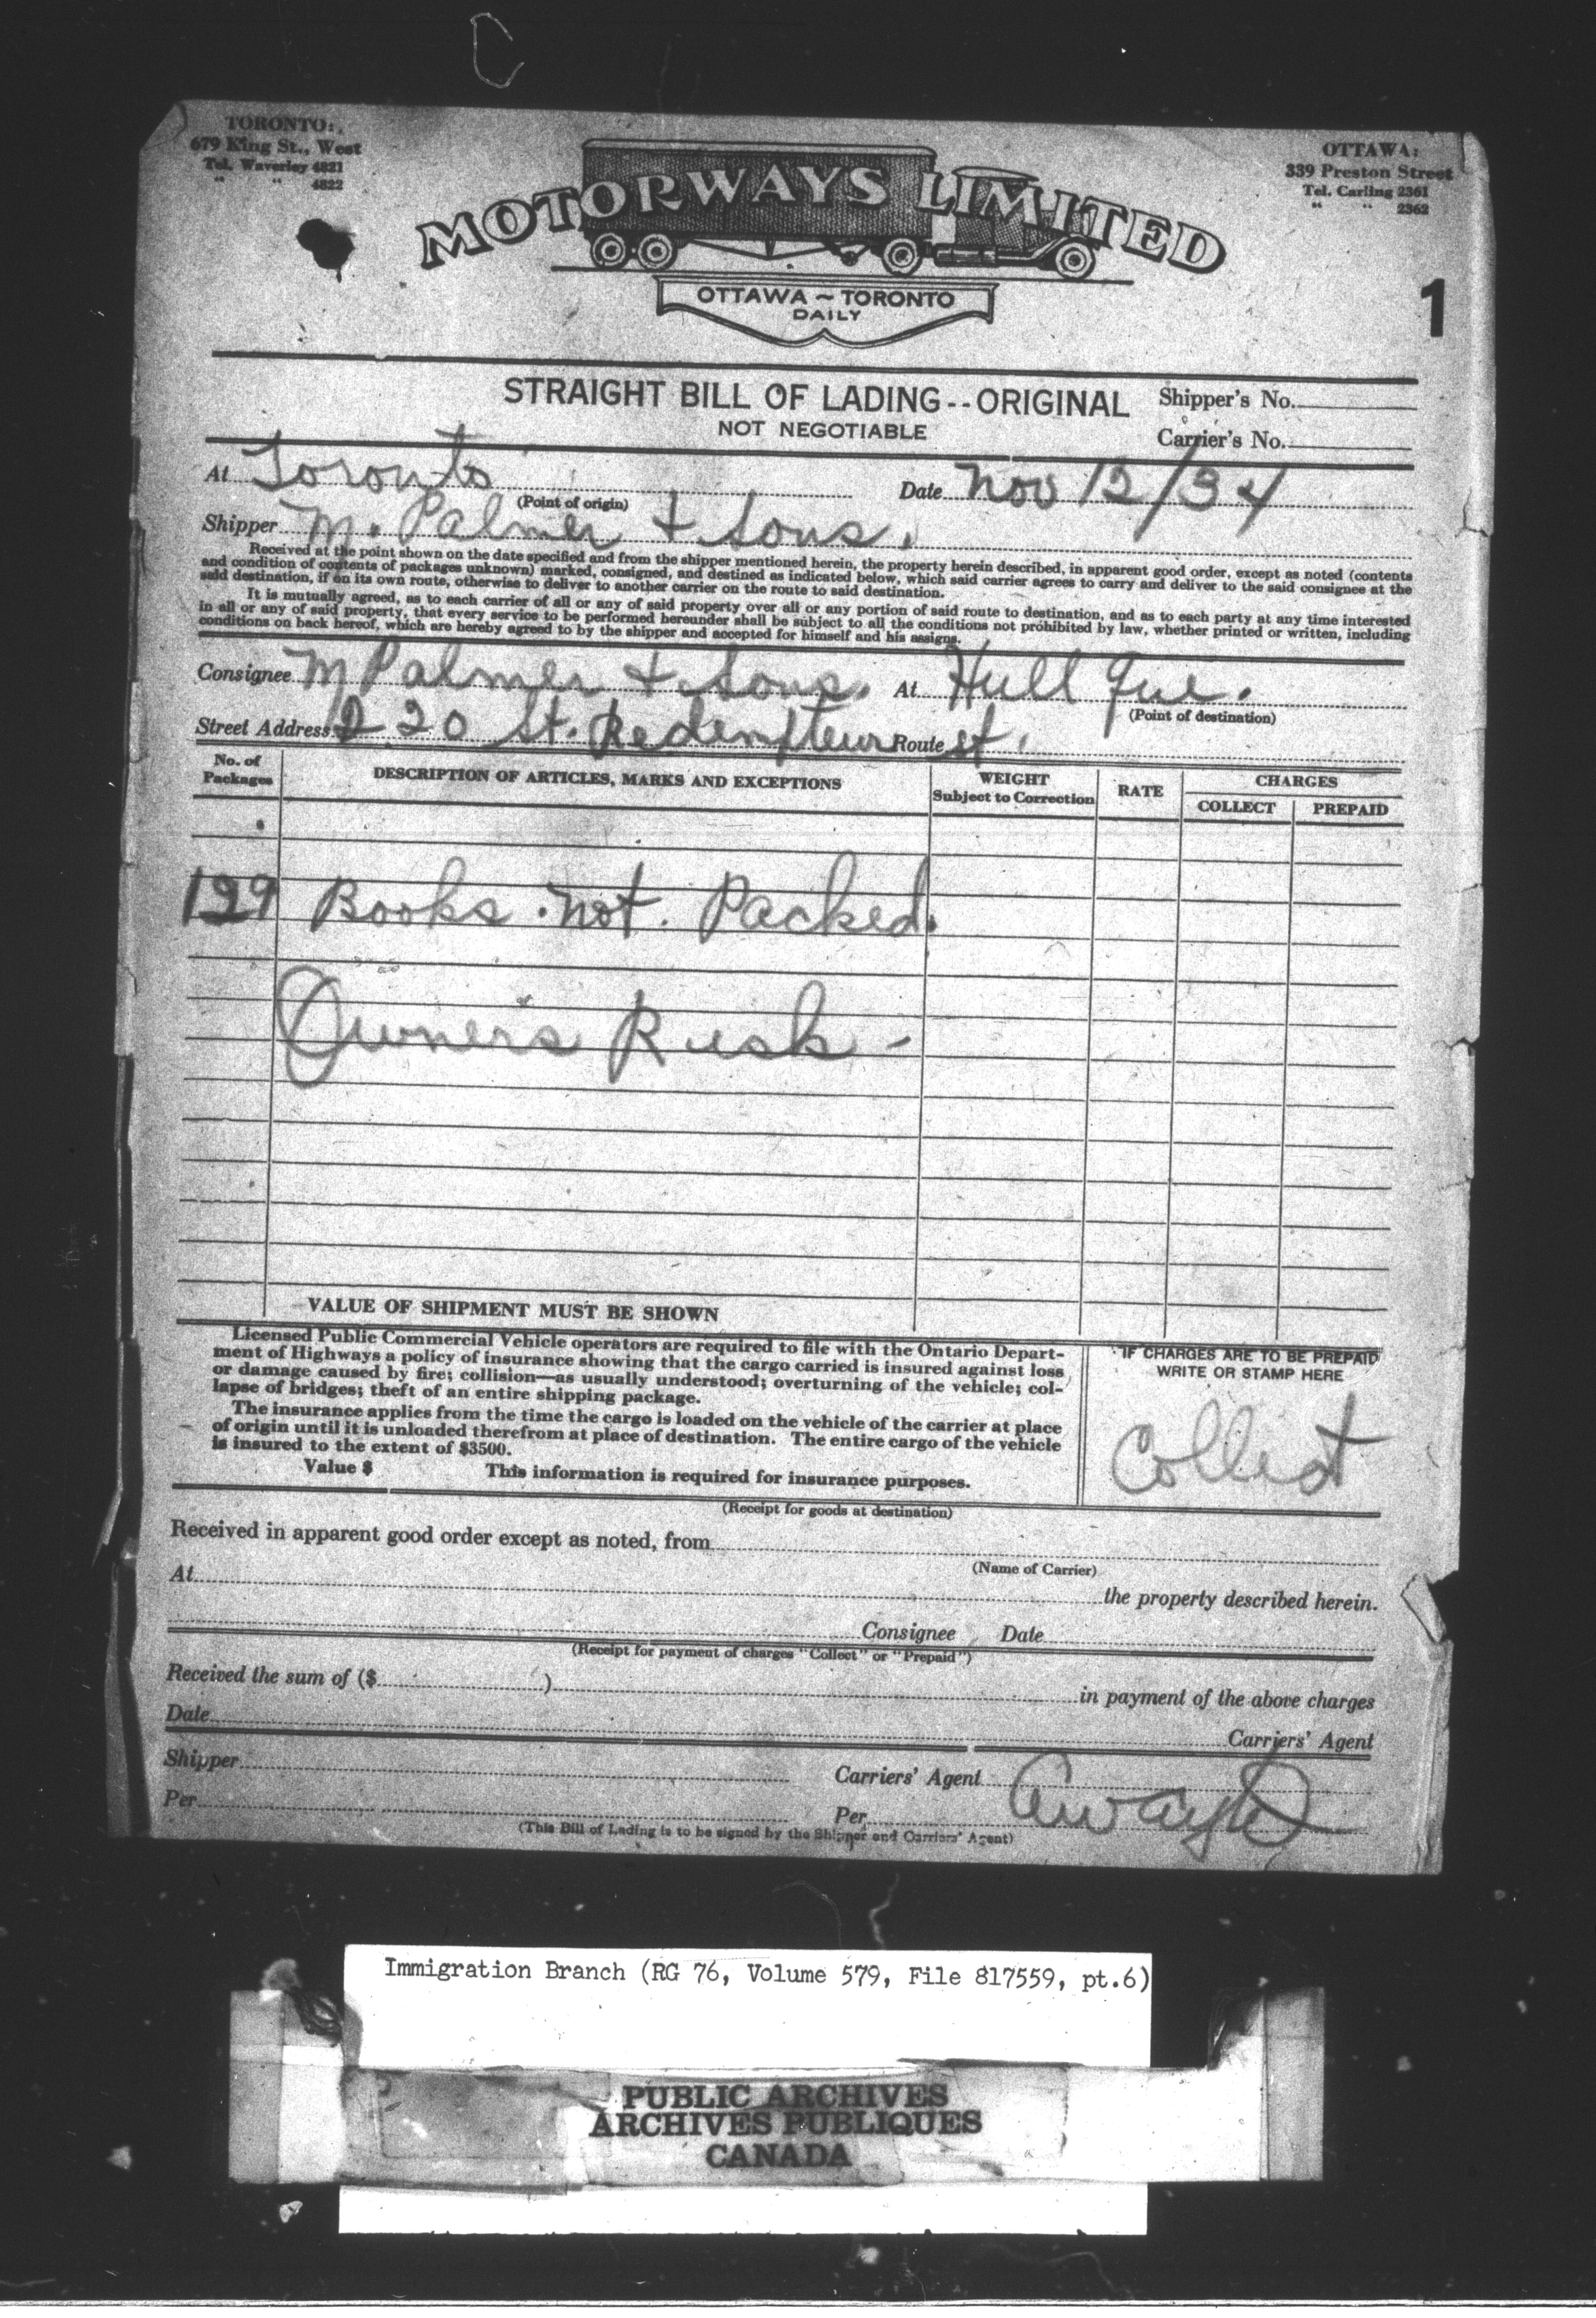 C
TORONTO:
679 King St., West
Tel. Waverley 4821
" " 4822
OTTAWA:
339 Preston Street
Tel. Carling 2361
" " 2362
MOTORWAYS LIMITED
OTTAWA ~ TORONTO
DAILY
1
STRAIGHT BILL OF LADING--ORIGINAL
NOT NEGOTIABLE
Shipper's No.
Carrier's No.
At Toronto Date Nov 12/34
(Point of origin)
Shipper M. Palmer + Sons.
Received at the point shown on the date specified and from the shipper mentioned herein, the property herein described, in apparent good order, except as noted (contents
and condition of contents of packages unknown) marked, consigned, and destined as indicated below, which said carrier agrees to carry and deliver to the said consignee at the
said destination, if on its own route, otherwise to deliver to another carrier on the route to said destination.
It is mutually agreed, as to each carrier of all or any of said property over all or any portion of said route to destination, and as to each party at any time interested
in all or any of said property, that every service to be performed hereunder shall be subject to all the conditions not prohibited by law, whether printed or written, including
conditions on back hereof, which are hereby agreed to by the shipper and accepted for himself and his assigns.
Consignee M Palmer + Sons. At Hull Que.
(Point of destination)
Street Address 220 St. Redempteur Route st.
No. of Packages DESCRIPTION OF ARTICLES, MARKS AND EXCEPTIONS WEIGHT Subject to Correction RATE CHARGES
COLLECT PREPAID
129 Books . not . Packed.
Owner's Risk -
VALUE OF SHIPMENT MUST BE SHOWN
Licensed Public Commercial Vehicle operators are required to file with the Ontario Depart-
ment of Highways a policy of insurance showing that the cargo carried is insured against loss
or damage caused by fire; collision—as usually understood; overturning of the vehicle; col-
lapse of bridges; theft of an entire shipping package.
The insurance applies from the time the cargo is loaded on the vehicle of the carrier at place
of origin until it is unloaded therefrom at place of destination. The entire cargo of the vehicle
is insured to the extent of $3500.
Value $ This information is required for insurance purposes.
IF CHARGES ARE TO BE PREPAID
WRITE OR STAMP HERE
Collect
(Receipt for goods at destination)
Received in apparent good order except as noted, from
(Name of Carrier)
At the property described herein.
Consignee Date
(Receipt for payment of charges "Collect" or "Prepaid")
Received the sum of ($ ) in payment of the above charges
Date Carriers' Agent
Shipper Carriers' Agent
Per Per
(This Bill of Lading is to be signed by the Shipper and Carriers' Agent)
Immigration Branch (RG 76, Volume 579, File 817559, pt.6)
PUBLIC ARCHIVES
ARCHIVES PUBLIQUES
CANADA